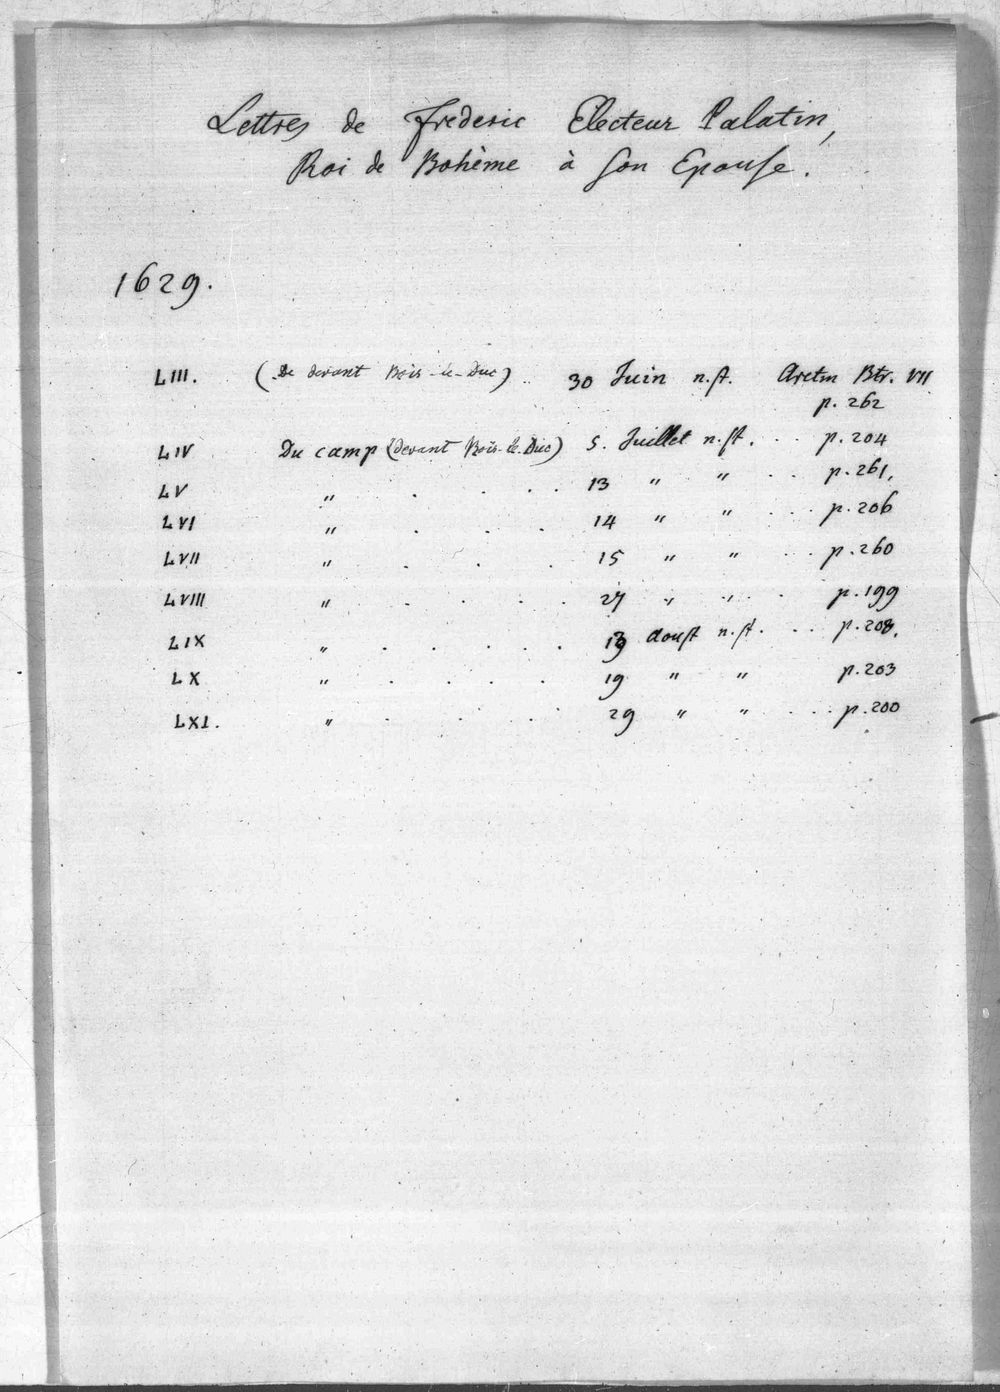 Lettres de frederic Electeur Palatin,
Roi de Bohème à son Epouse.
1629.
LIII. (De devant Bois-le-Duc) .. 30 Juin n.st. Aretin Btr. VII
p. 262
LIV Du camp (devant Bois-le-Duc) 5. Juillet n.st. . . . p. 204
LV " . . . . 13 " " . . . p. 261,
LVI " . . . 14 " " . . . p. 206
LVII " . . . 15 " " . . . p. 260
LVIII " . . . . 27 " " . . p. 199
LIX " . . . . . 19 Aoust n.st. . . . p. 208,
LX " . . . . 19 " " p. 203
LXI. " . . . . 29 " " . . . p. 200